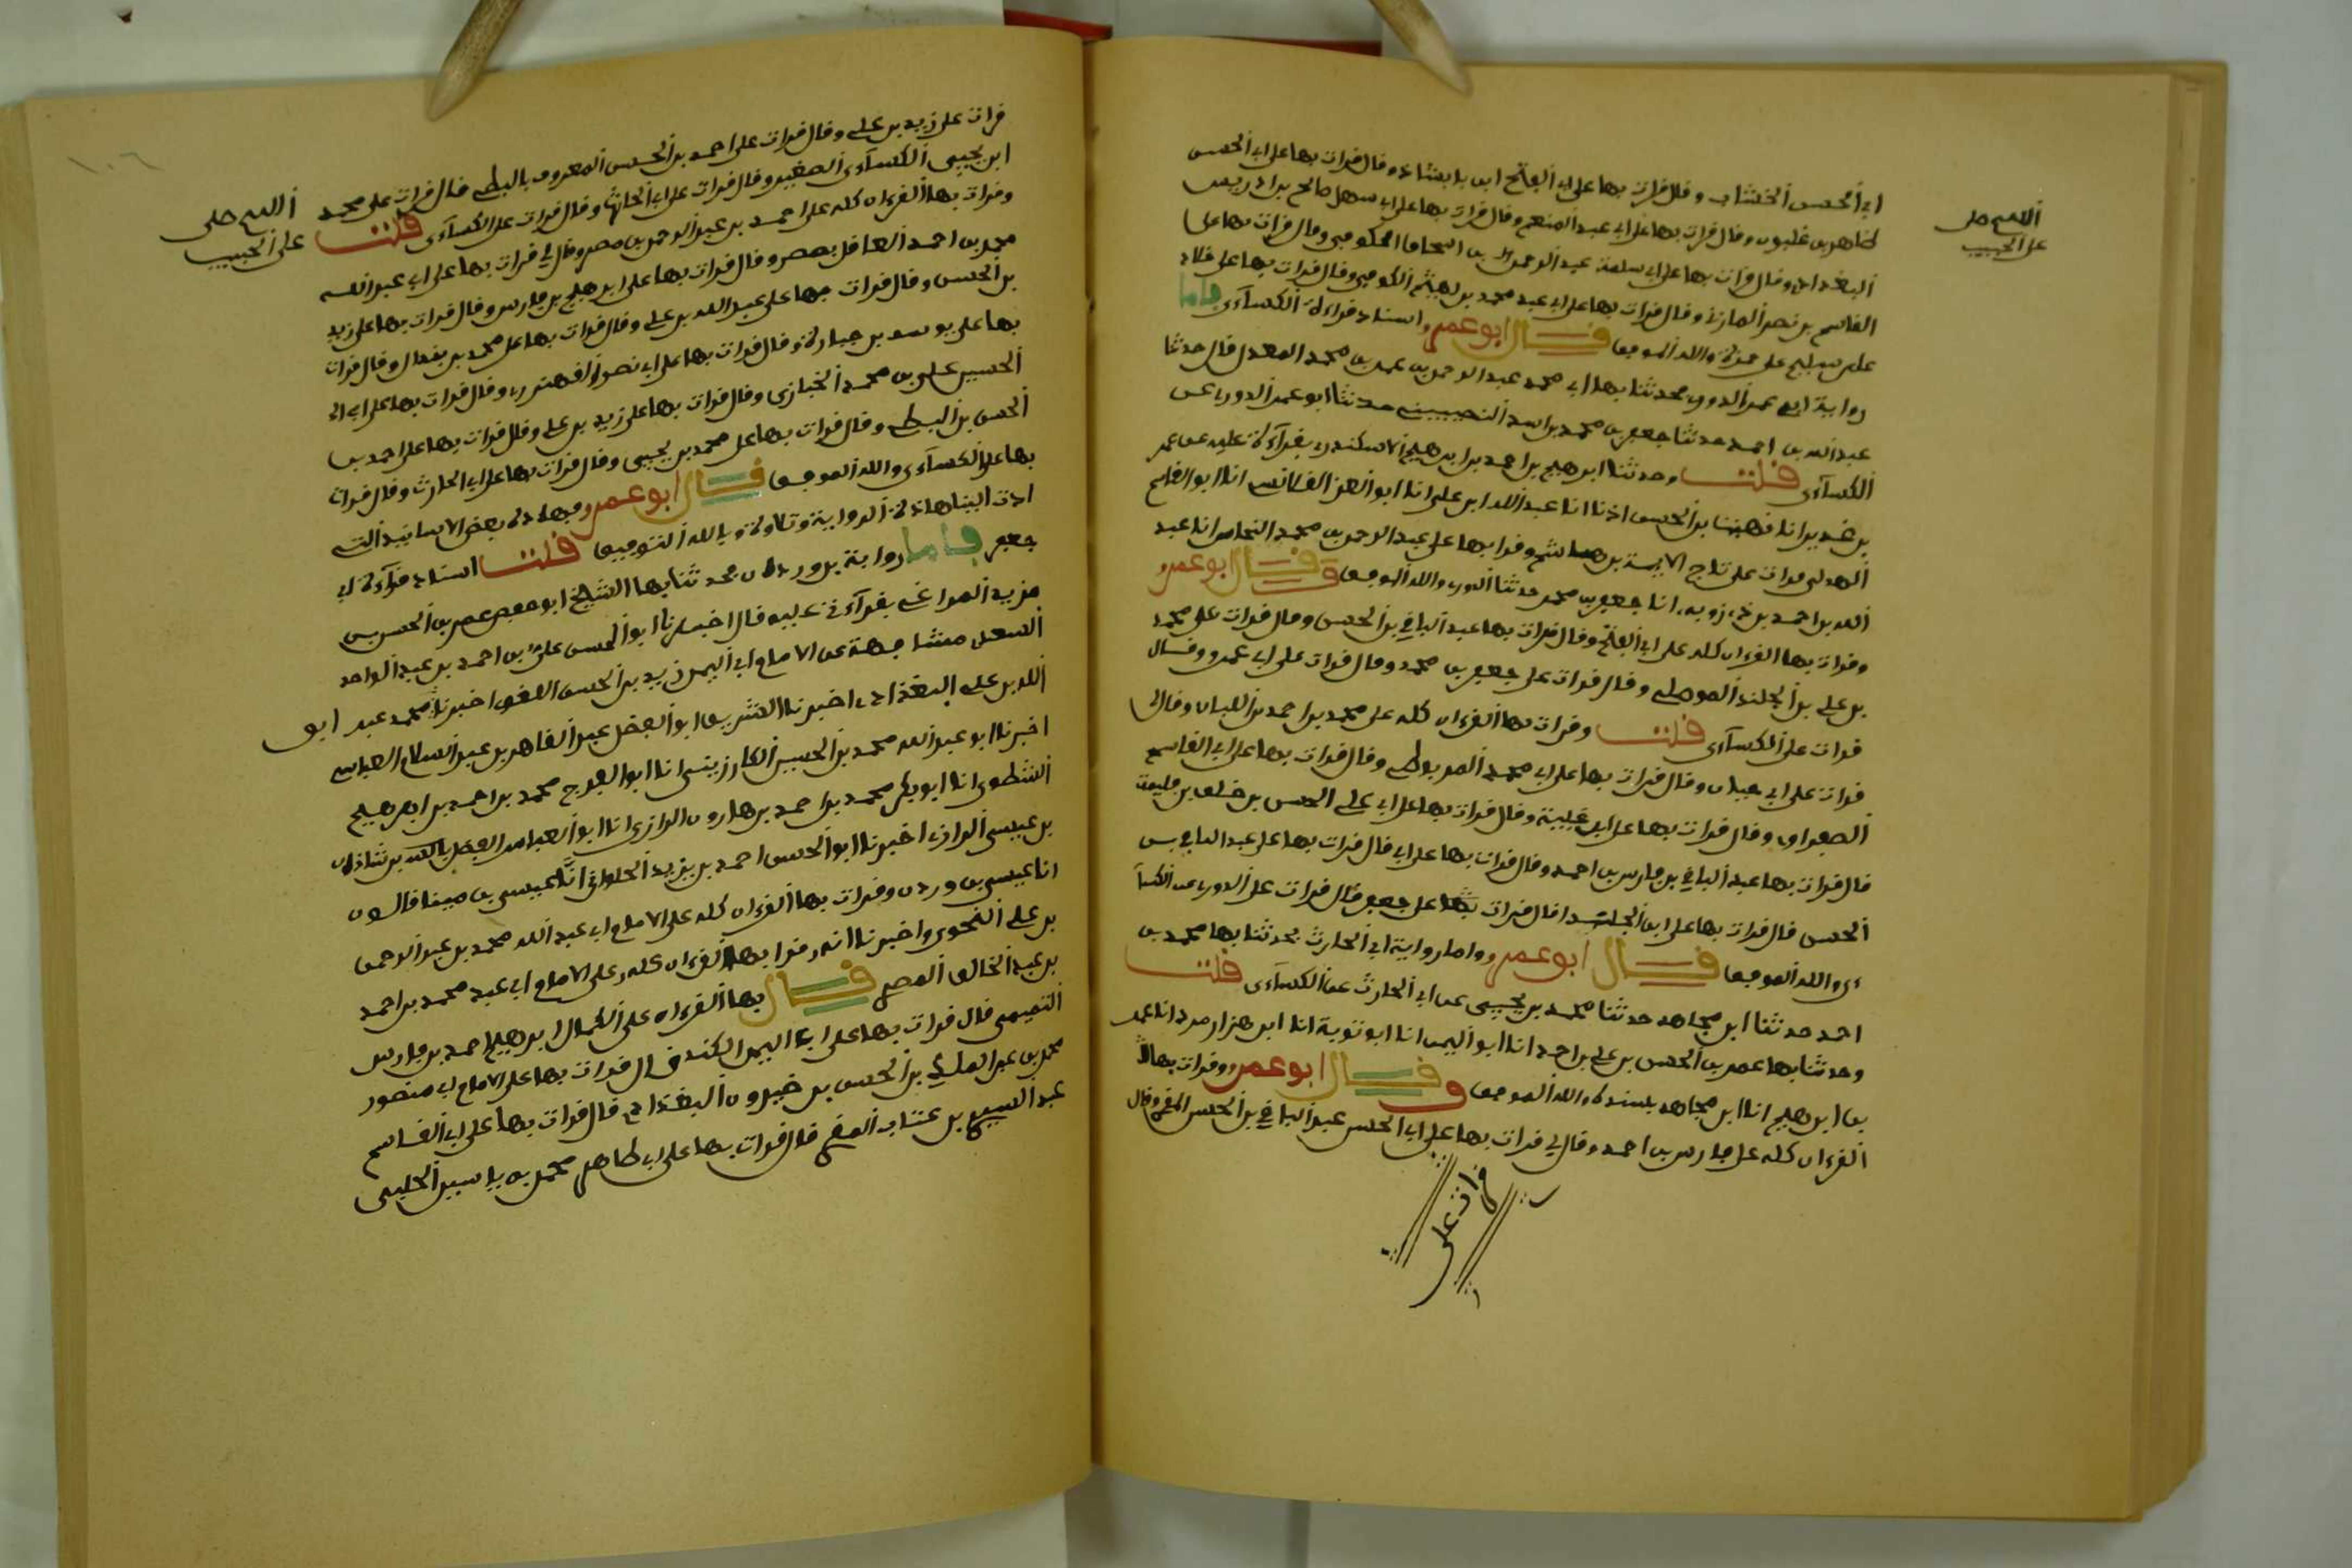 اللهم صل
على الحبيب
ابي الحسن الخشاب وقال قرات بها على ابي الفتح ابن بابشاذ وقال قرات بها على ابي الحسن
طاهر بن غلبون وقال قرات بها على ابي عبد المنعم وقال قرات بها على ابي سهل صالح بن ادريس
البغدادي وقال قرات بها على ابي سلمة عبد الرحمن بن اسحاق الكوفي وقال قرات بها على
القاسم بن نصر المازني وقال قرات بها على ابي عبد محمد بن الهيثم الكوفي وقال قرات بها على خلاد
على سليم على حمزة والله الموفق قال ابو عمرو اسناد قراءة الكساءى فاما
رواية ابي عمر الدوري محدثنا بها ابي محمد عبد الرحمن بن عمر بن محمد المعدل قال حدثنا
عبد الله بن احمد حدثنا جعفر بن محمد بن اسد النصيبيني حدثنا ابو عمر الدوري عن
الكساءى قلت وحدثنا ابرهيم بن احمد بن ابرهيم الاسكندري بقراءتي عليه عن عمر
بن غدير انا الحسن اذنا انا عبد الله ابن علي انا ابو العز القلانسي انا ابو القاسم
الهدلي قرات على تاج الايمة بن هاشم وقرا بها على عبد الرحمن بن محمد النحاس انا عبد
الله بن احمد انا جعفر بن محمد حدثنا الدوري والله الموفق وقال ابو عمرو
وقرات بها القرءان كله على ابي الفتح وقال قرات بها عبد الباقي بن الحسن وقال قرات على محمد
بن علي بن الجلندا الموصلي وقال قرات على جعفر بن محمد وقال قرات على ابي عمرو وقال
قرات على الكساءى قلت وقرات بها القرءان كله على محمد بن احمد بن اللبان وقال لي
قرات على ابي حيان وقال قرات بها على ابي محمد المربوطي وقال قرات بها على ابي القاسم
الصفراوي وقال قرات بها على ابن عطية وقال قرات بها على ابي علي الحسن بن خلف بن بليمة
قال قرات بها عبد الباقي بن فارس بن احمد وقال قرات بها على ابي قال قرات بها على عبد الباقي بن
الحسن قال قرات بها على ابن الجلندا قال قرات بها على جعفر قال قرات على الدوري عن الكسا
ءى والله الموفق قال ابو عمرو واما رواية ابي الحارث فحدثنا بها محمد بن
احمد حدثنا ابن مجاهد حدثنا محمد بن يحيى عن ابي الحارث عن الكساءى قلت
وحدثنا بها عمر بن الحسن بن علي بن احمد انا ابو اليمن انا ابو توبة انا ابن هزارمرد انا عمر
بن ابرهيم انا ابن مجاهد بسنده والله الموفق وقال ابو عمرو وقرات بها
القرءان كله على فارس بن احمد وقال لي قرات بها على ابي الحسن عبد الباقي بن الحسن المقري وقال
قرات على
اللهم صل
على الحبيب
قرات على زيد بن علي وقال قرات على احمد بن الحسن المعروف بالبطي قال قرات على محمد
ابن يحيى الكساءى الصغير وقال قرات على ابي الحارث وقال قرات على الكساءى قلت
وقرات بها القرءان كله على احمد بن عبد الرحمن بن مصر وقال لي قرات بها على ابي عبد الله
محمد بن احمد العاقل بمصر وقال قرات بها على ابرهيم بن فارس وقال قرات بها على زيد
بن الحسن وقال قرات بها على عبد الله بن علي وقال قرات بها على محمد بن بندار وقال قرات
بها على يوسف بن جبارة وقال قرات بها على ابي نصر القهندزي وقال قرات بها على ابي
الحسين علي بن محمد الخبازي وقال قرات بها على زيد بن علي وقال قرات بها على احمد بن
الحسن بن البطي وقال قرات بها على محمد بن يحيى وقال قرات بها على ابي الحارث وقال قرات
بها على الكساءى والله الموفق قال ابو عمرو فهذه بعض الاسانيد التي
ادت الينا هذه الرواية وتلاوة وبالله التوفيق قلت اسناد قراءة ابي
جعفر فاما رواية بن وردان محدثنا بها الشيخ ابو حفص عمر بن الحسن بن
مزيد المراغي بقراءتي عليه قال اخبرنا ابو الحسن علي بن احمد بن عبد الواحد
السعدي مشافهة عن الامام ابي اليمن زيد بن الحسن اللغوي اخبرنا محمد عبد ابو
الله بن علي البغدادي اخبرنا الشريف ابو الفضل عبد القاهر بن عبد السلام العباسي
اخبرنا ابو عبد الله محمد بن الحسين الكارزيني انا ابو الفرج محمد بن احمد بن ابرهيم
الشطوي انا ابو بكر محمد بن احمد بن هارون الرازي انا ابو العباس الفضل بن شاذان
بن عيسى الرازي اخبرنا ابو الحسن احمد بن يزيد الحلواني انا عيسى بن مينا قالون
انا عيسى بن وردن وقرات بها القرءان كله على الامام ابي عبد الله محمد بن عبد الرحمن
بن علي النحوي واخبرنا انه قرا بها القرءان كله وعلى الامام ابي عبد محمد بن احمد
بن عبد الخالق المصري قال بها القرءان على الكمال ابرهيم احمد بن فارس
التميمي قال قرات بها على ابي اليمن الكندي قال قرات بها على الامام ابي منصور
محمد بن عبد الملك بن الحسن بن خيرون البغدادي قال قرات بها على ابي القاسم
عبد السيد بن عتاب المقري قال قرات بها على ابي طاهر محمد بن ياسين الحلبي